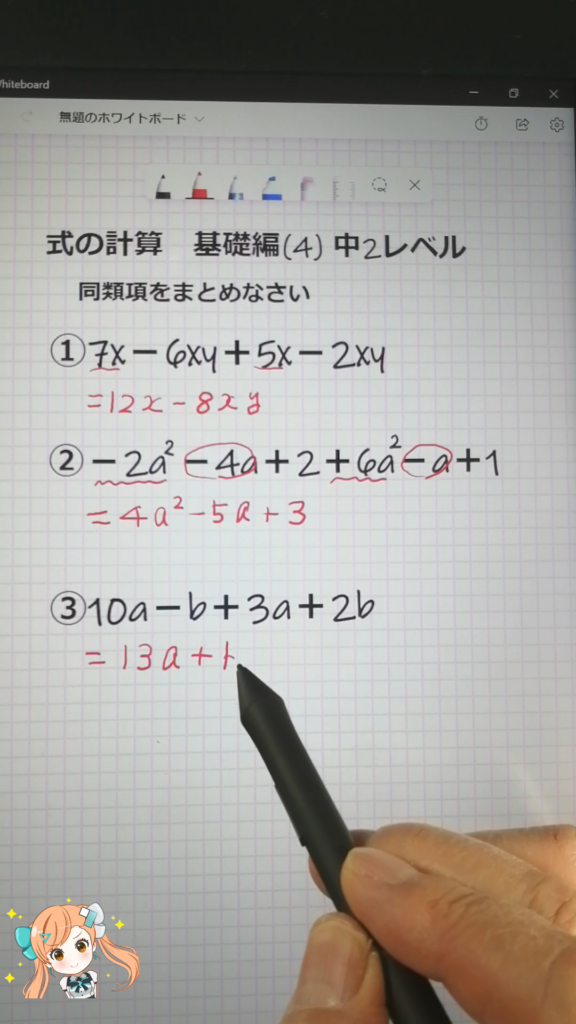 Whiteboard
無題のホワイトボード
式の計算 基礎編(4) 中2レベル
同類項をまとめなさい
①7x−6xy+5x−2xy
=12x−8xy
②−2a²−4a+2+6a²−a+1
=4a²−5a+3
③10a−b+3a+2b
=13a+